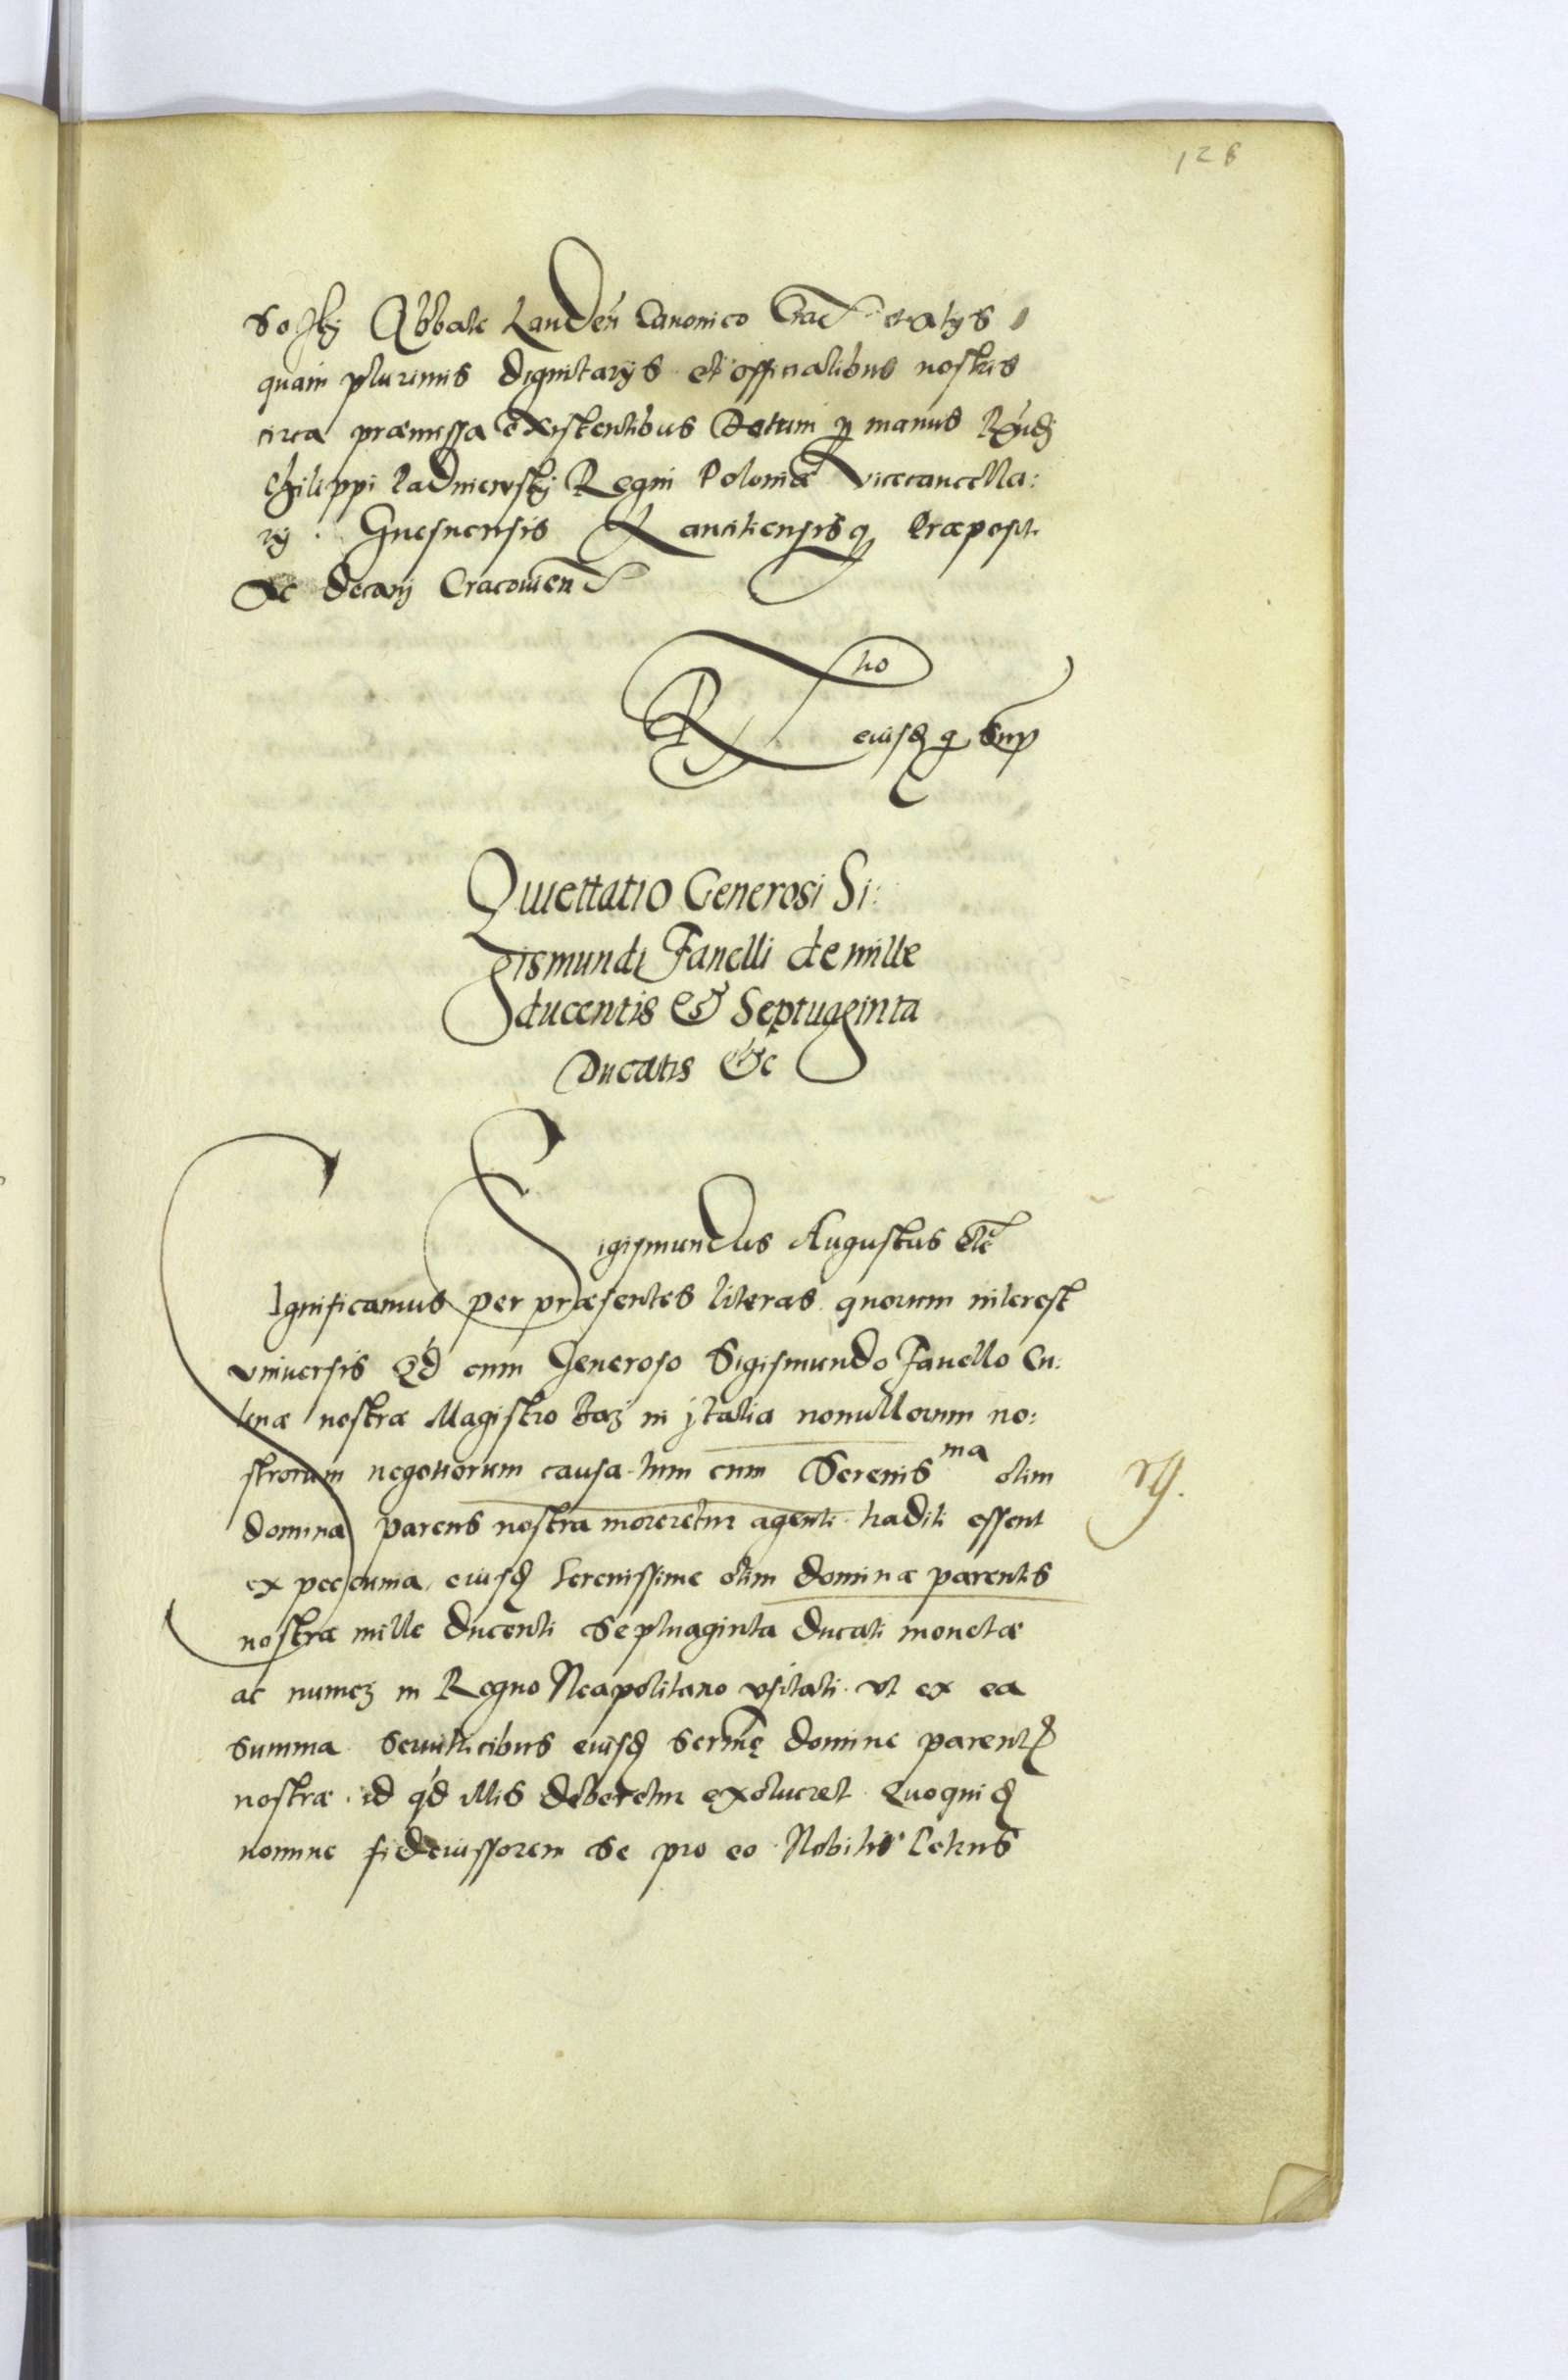 128
soskÿ Abbate Landeñ Canonico Crac: et alÿs
quam plurimis dignitarÿs et officialibus nostris
circa præmissa existentibus Datum p manus Rñdi
Philippi Padniewskÿ Regni Poloniæ Vicecancella:
rÿ. Gnesnensis Lanciciensisq Præposit.
Ac decani Cracovien
R tio
eiusd q supr
Quiettatio Generosi Si:
gismundi Fanelli de mille
ducentis & Septuaginta
Ducatis &c
Sigismundus Augustus Etc
Significamus per præsentes literas quorum interest
vniuersis Qd cum Generoso Sigismundo Fanello Cu:
linæ nostræ Magistro in ÿtalia nonullorum no:
strorum negotiorum causa tum cum Serenis ma olim
domina parens nostra moreretur agenti traditi essent
ex peccunia eiusd Serenissime olim dominæ parentis
nostræ mille ducenti Septuaginta ducati monetæ
ac numeri in Regno Neapolitano vsitati vt ex ea
summa Seruitricibus eiusd Sermę domine parentis
nostræ id qd illis deberetur exolueret Quoquid
nomine fideiussorem se pro eo Nobilis Petrus